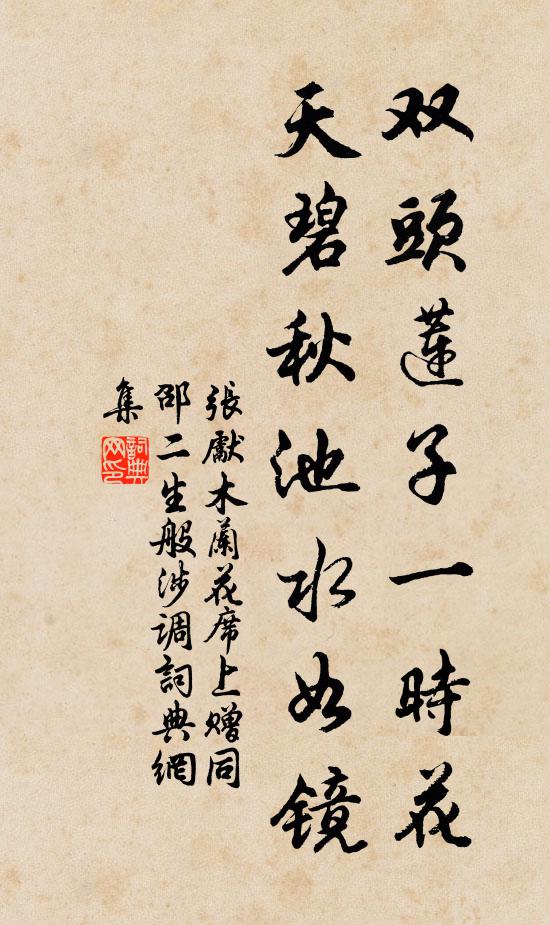 双頭蓮子一時花
天碧秋池水如镜
張獻木蘭花席上赠同
邵二生般涉调詞典網
集
詞典网印